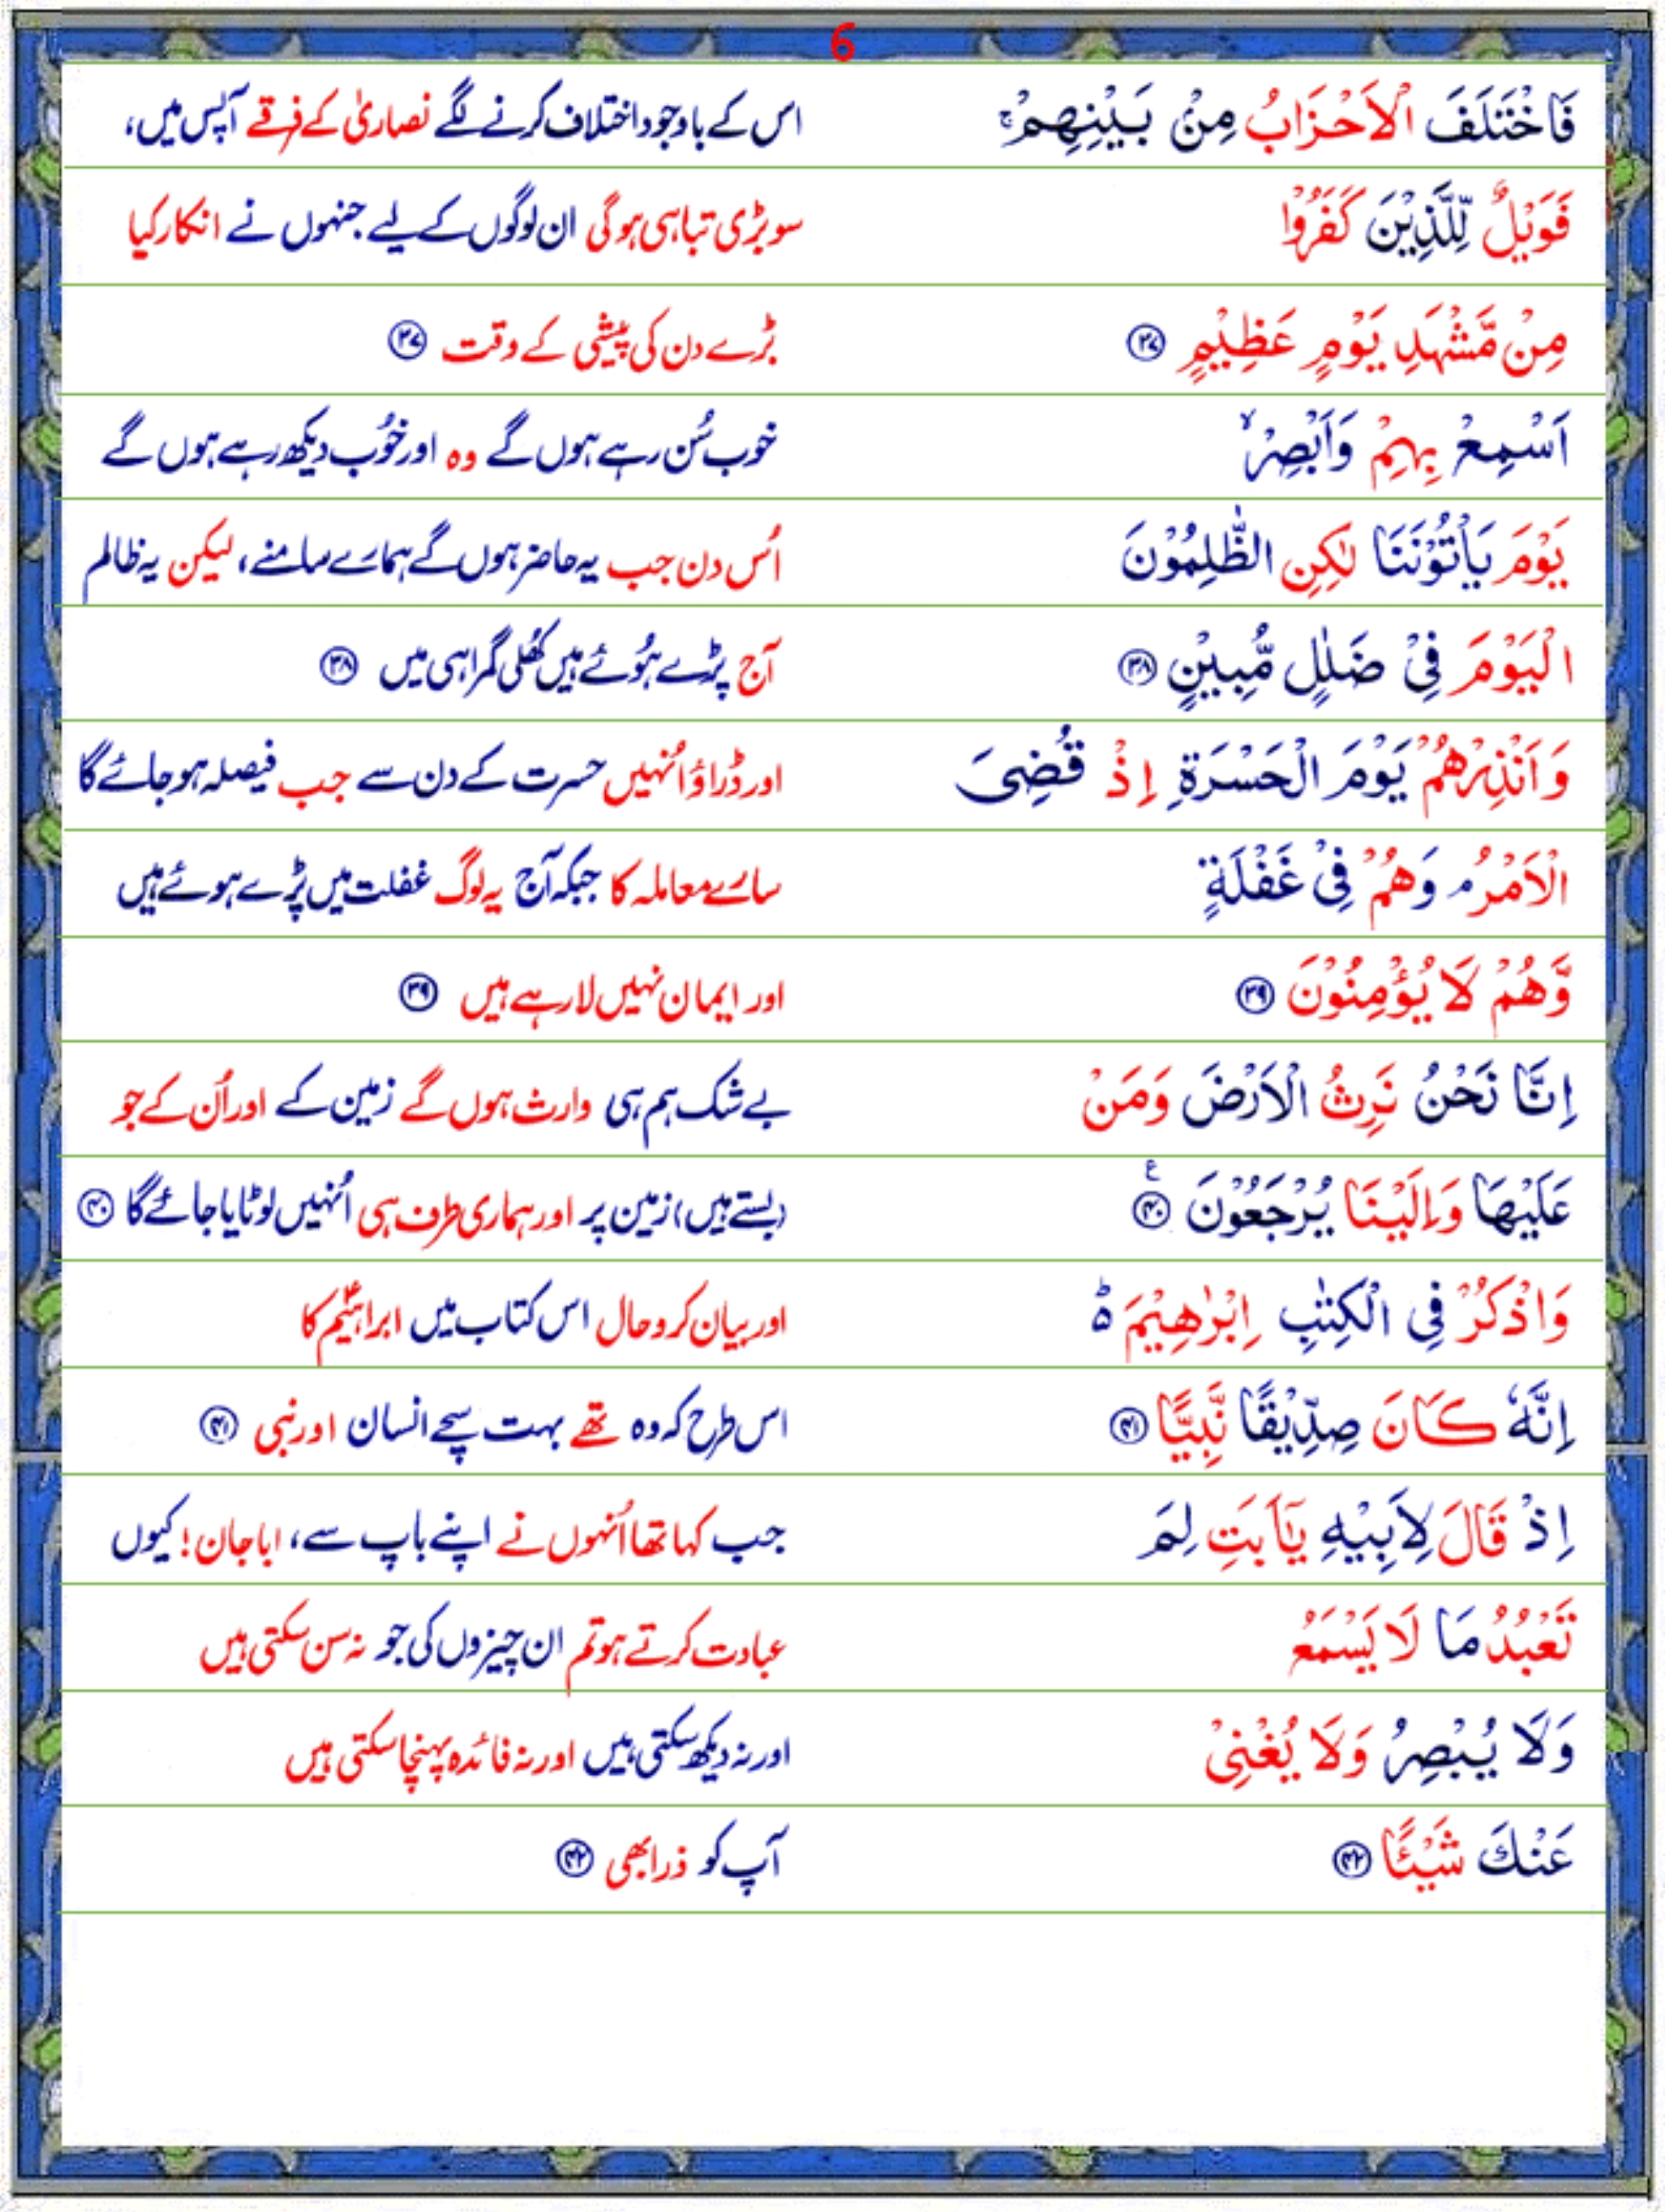 6
فَاخْتَلَفَ الْاَحْزَابُ مِنْۢ بَيْنِهِمْ ۚ اس کے باوجود اختلاف کرنے لگے نصاریٰ کے فرقے آپس میں،
فَوَيْلٌ لِّلَّذِيْنَ كَفَرُوْا سو بڑی تباہی ہوگی ان لوگوں کے لیے جنہوں نے انکار کیا
مِنْ مَّشْهَدِ يَوْمٍ عَظِيْمٍ ۳۷ بڑے دن کی پیشی کے وقت ۳۷
اَسْمِعْ بِهِمْ وَاَبْصِرْ ۙ خوب سُن رہے ہوں گے وہ اور خوُب دیکھ رہے ہوں گے
يَوْمَ يَاْتُوْنَنَا لٰكِنِ الظّٰلِمُوْنَ اُس دن جب یہ حاضر ہوں گے ہمارے سامنے، لیکن یہ ظالم
الْيَوْمَ فِيْ ضَلٰلٍ مُّبِيْنٍ ۳۸ آج پڑے ہُوئے ہیں کُھلی گمراہی میں ۳۸
وَاَنْذِرْهُمْ يَوْمَ الْحَسْرَةِ اِذْ قُضِيَ اور ڈراؤ اُنہیں حسرت کے دن سے جب فیصلہ ہوجائے گا
الْاَمْرُ ۘ وَهُمْ فِيْ غَفْلَةٍ سارے معاملہ کا جبکہ آج یہ لوگ غفلت میں پڑے ہوئے ہیں
وَّهُمْ لَا يُؤْمِنُوْنَ ۳۹ اور ایمان نہیں لارہے ہیں ۳۹
اِنَّا نَحْنُ نَرِثُ الْاَرْضَ وَمَنْ بے شک ہم ہی وارث ہوں گے زمین کے اور اُن کے جو
عَلَيْهَا وَاِلَيْنَا يُرْجَعُوْنَ ۴۰ ع (بستے ہیں) زمین پر اور ہماری طرف ہی اُنہیں لوٹایا جائے گا ۴۰
وَاذْكُرْ فِي الْكِتٰبِ اِبْرٰهِيْمَ ؕ اور بیان کرو حال اس کتاب میں ابراہیمؑ کا
اِنَّهٗ كَانَ صِدِّيْقًا نَّبِيًّا ۴۱ اس طرح کہ وہ تھے بہت سچے انسان اور نبی ۴۱
اِذْ قَالَ لِاَبِيْهِ يٰٓاَبَتِ لِمَ جب کہا تھا اُنہوں نے اپنے باپ سے، اباجان! کیوں
تَعْبُدُ مَا لَا يَسْمَعُ عبادت کرتے ہو تم ان چیزوں کی جو نہ سن سکتی ہیں
وَلَا يُبْصِرُ وَلَا يُغْنِيْ اور نہ دیکھ سکتی ہیں اور نہ فائدہ پہنچا سکتی ہیں
عَنْكَ شَيْئًا ۴۲ آپ کو ذرا بھی ۴۲